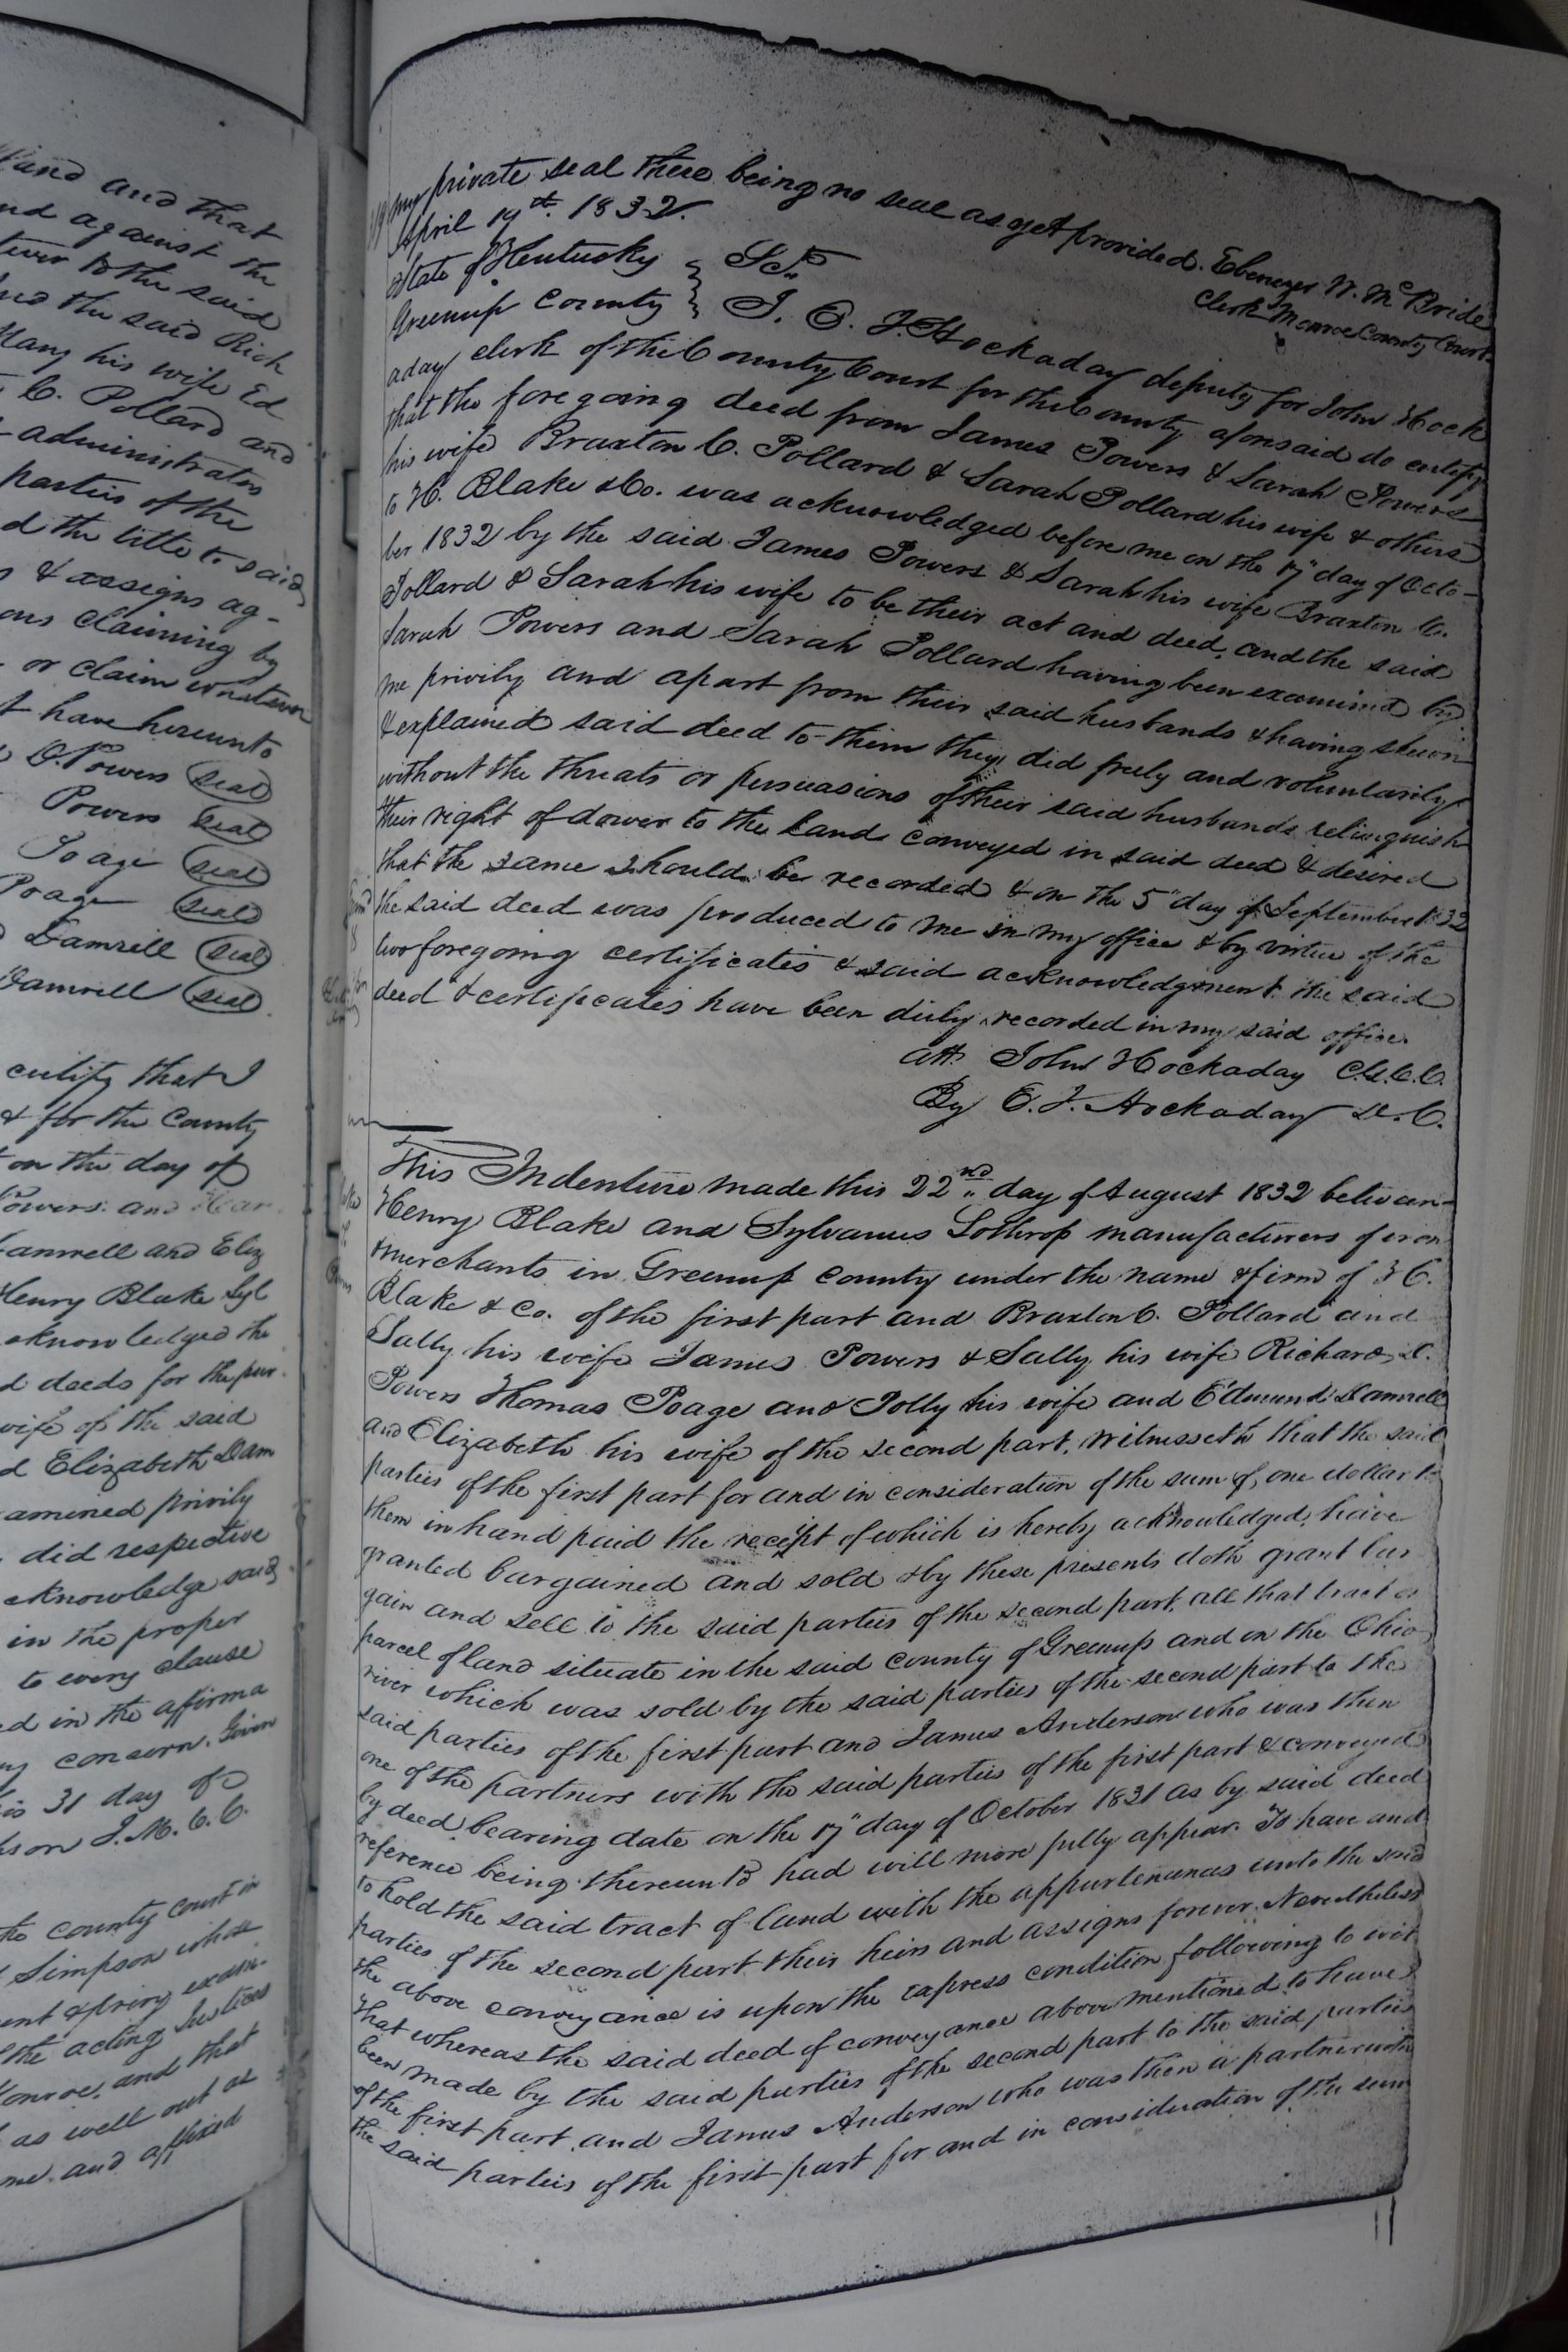 land and that
nd against the
ever to the said
and the said Rich
Mary his wife Ed
C. Pollard and
administrators
parties of the
d the title to said
s & assigns ag-
ons claiming by
or claim whatever
t have hereunto
D. Powers seal
Powers seal
Poage seal
Poage seal
Damrell seal
Damrell seal
certify that I
& for the County
on the day of
Powers and
amrell and Eliz
Henry Blake Syl
cknowledged the
d deeds for the pur-
wife of the said
d Elizabeth Dam
amined privily
did respective
cknowledge said
in the proper
to every clause
ed in the affirma
ny concern. Given
is 31 day of
son J. M. C. C.
the County Court in
Simpson whose
ent & privy exam-
the acting Justices
Monroe, and that
as well out as
me and affixed
my private seal there being no seal as yet provided. Ebenezer W. McBride
April 19th. 1832. Clerk Monroe County Court
State of Kentucky } Sct.
Greenup County } I. E. J. Hockaday deputy for John Hock
aday clerk of the County Court for the County aforesaid do certify
that the foregoing deed from James Powers & Sarah Powers
his wife Braxton C. Pollard & Sarah Pollard his wife & others
to H. Blake & Co. was acknowledged before me on the 17" day of Octo-
ber 1832 by the said James Powers & Sarah his wife Braxton C.
Pollard & Sarah his wife to be their act and deed, and the said
Sarah Powers and Sarah Pollard having been examined by
me privily and apart from their said husbands & having shewn
& explained said deed to them they did freely and voluntarily
without the threats or persuasions of their said husbands relinquish
their right of dower to the land conveyed in said deed & desired
that the same should be recorded & on the 5" day of September 1832
the said deed was produced to me in my office & by virtue of the
two foregoing certificates & said acknowledgment the said
deed & certificates have been duly recorded in my said office.
att. John Hockaday C.G.C.C.
By E. J. Hockaday D. C.
This Indenture made this 22nd day of August 1832 between
Henry Blake and Sylvanus Lothrop manufacturers of iron
& merchants in Greenup County under the name & firm of H.
Blake & Co. of the first part and Braxton C. Pollard and
Sally his wife James Powers & Sally his wife Richard D.
Powers Thomas Poage and Polly his wife and Edmund Damrell
and Elizabeth his wife of the second part. Witnesseth that the said
parties of the first part for and in consideration of the sum of, one dollar to
them in hand paid the receipt of which is hereby acknowledged, have
granted bargained and sold & by these presents doth grant bar
gain and sell to the said parties of the second part, all that tract or
parcel of land situate in the said county of Greenup and on the Ohio
river which was sold by the said parties of the second part to the
said parties of the first part and James Anderson who was then
one of the partners with the said parties of the first part & conveyed
by deed bearing date on the 17" day of October 1831 as by said deed
reference being thereunto had will more fully appear. To have and
to hold the said tract of land with the appurtenances unto the said
parties of the second part their heirs and assigns forever. Nevertheless
the above conveyance is upon the express condition following to wit
That whereas the said deed of conveyance above mentioned to have
been made by the said parties of the second part to the said parties
of the first part and James Anderson who was then a partner with
the said parties of the first part for and in consideration of the sum